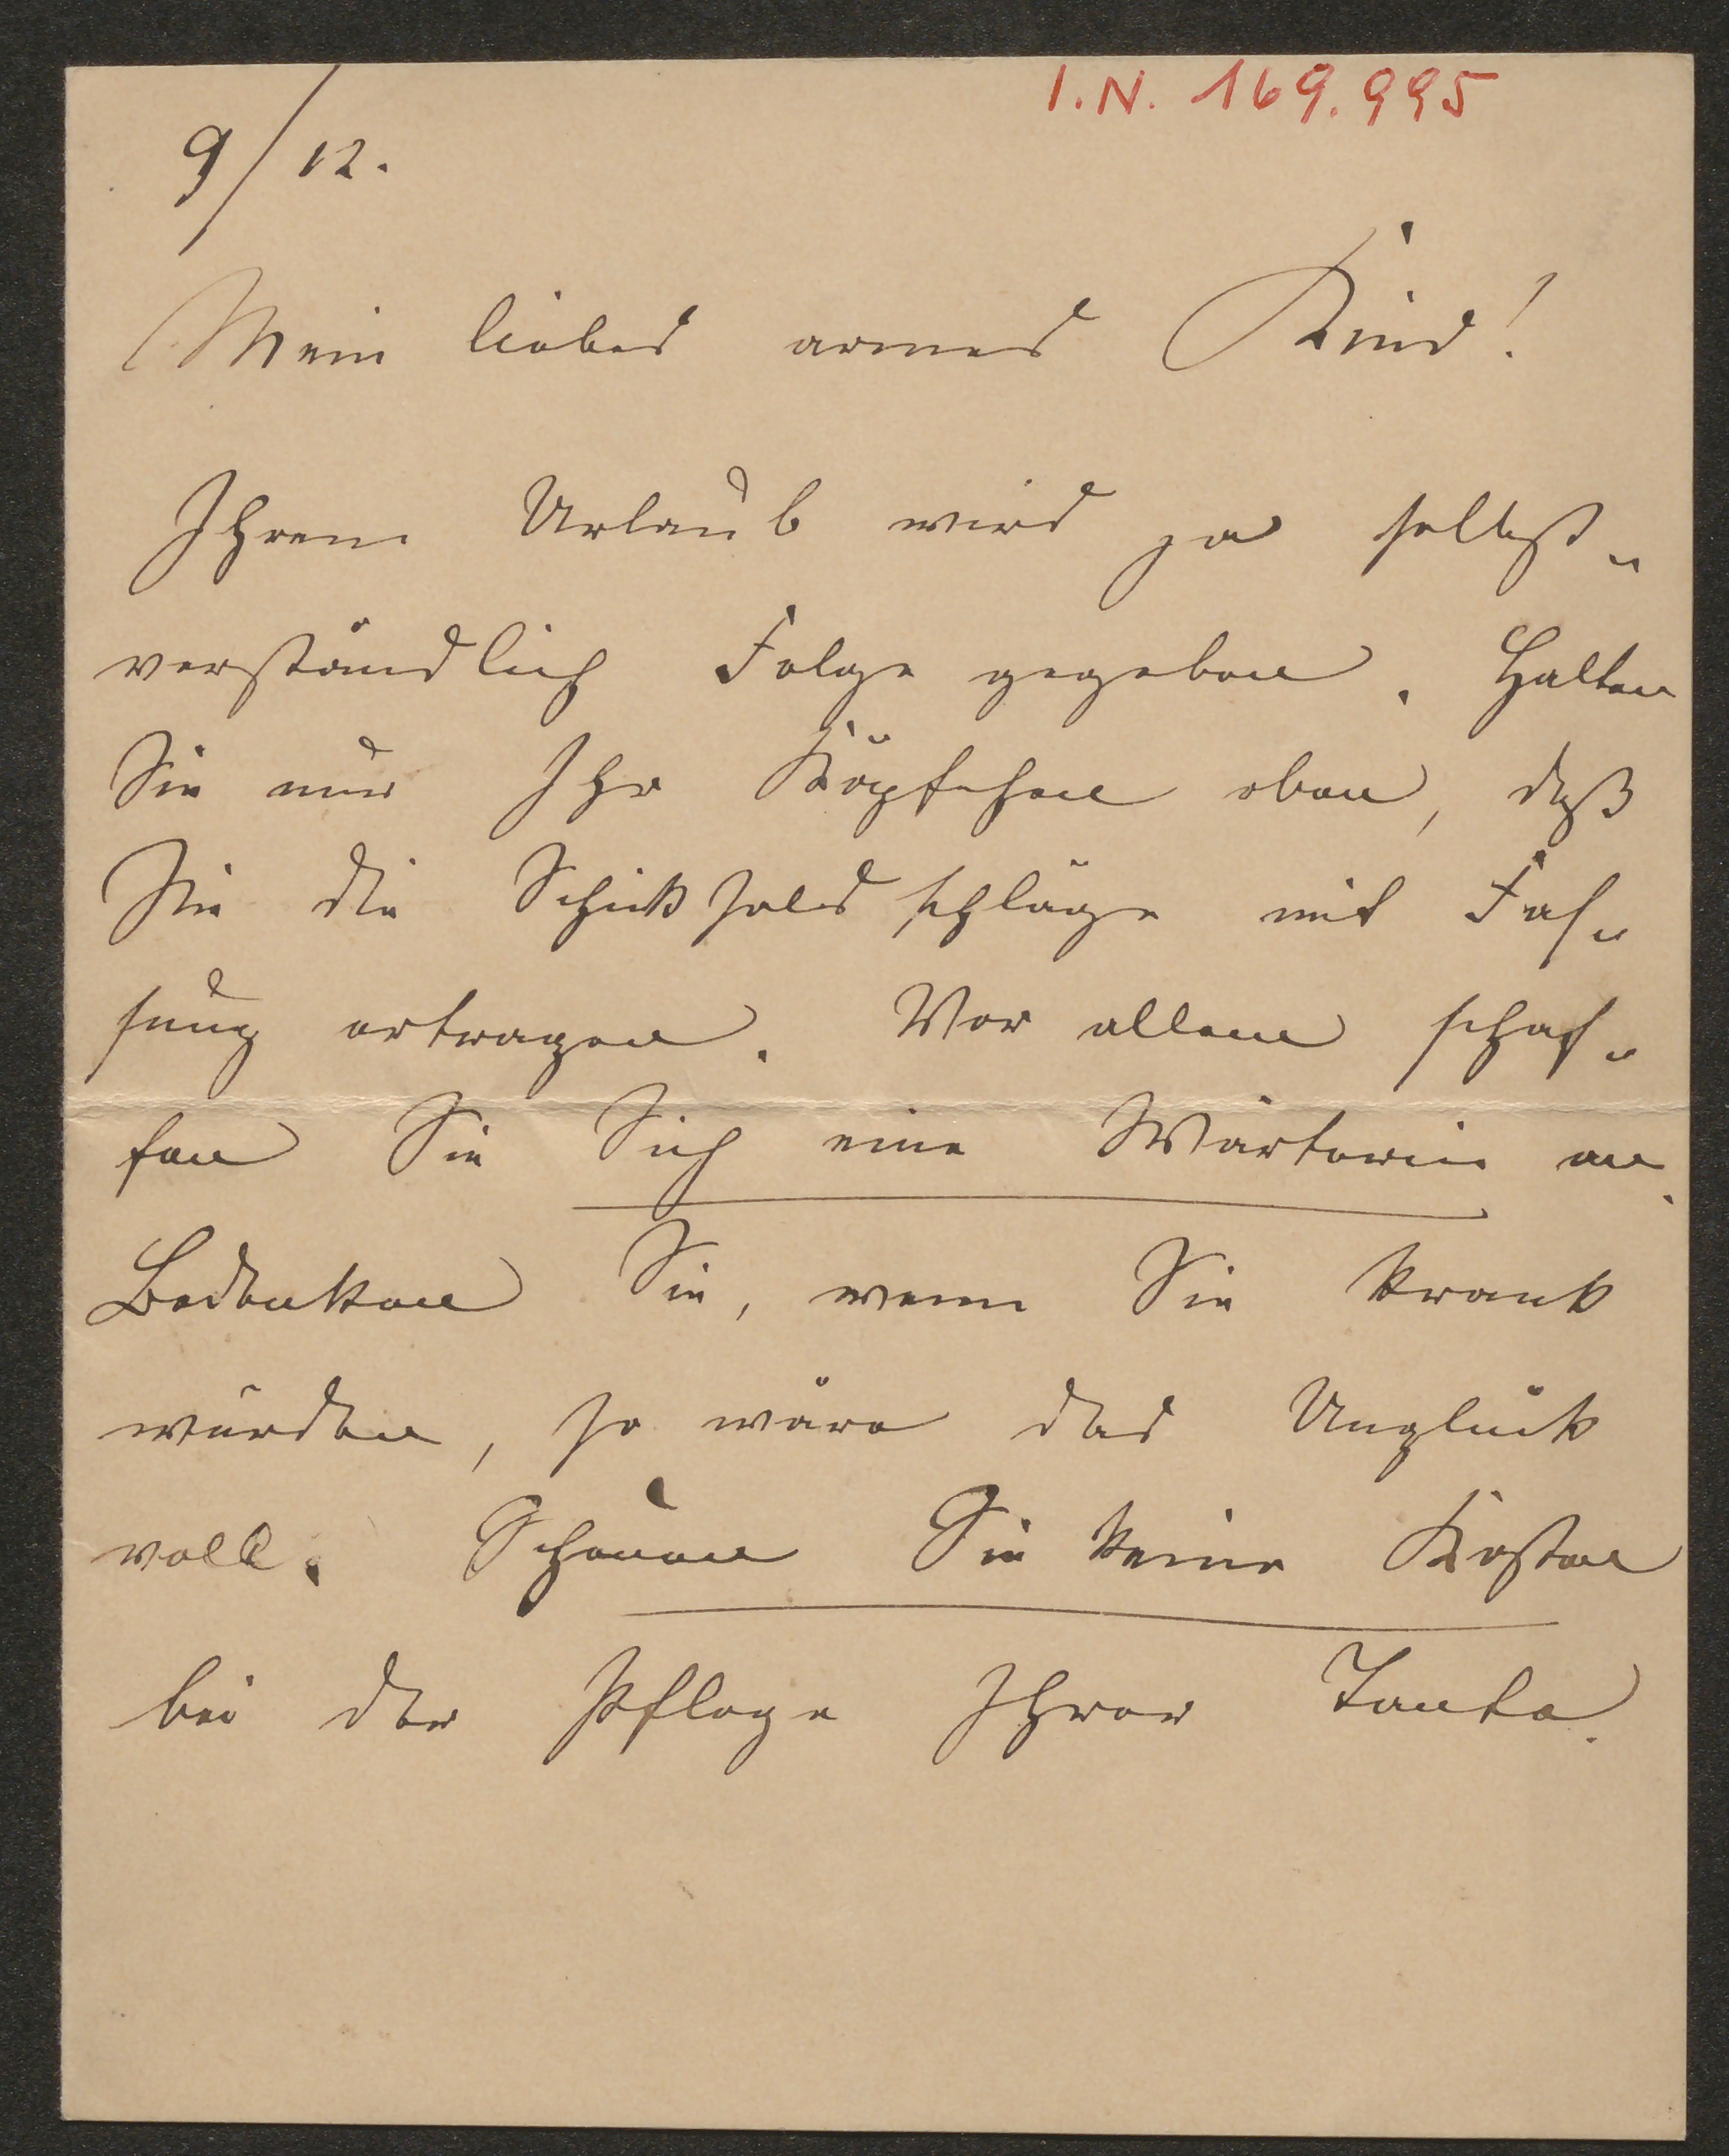 I.N. 169.995
9/12.
Mein liebes armes Kind!
Ihrem Urlaub wird ja selbst-
verständlich Folge gegeben. Halten
Sie nur Ihr Köpfchen oben, daß
Sie die Schicksalsschläge mit Fas-
sung ertragen. Vor allem schaf-
fen Sie Sich eine Wärterin an.
Bedenken Sie, wenn Sie krank
würden, so wäre das Unglück
voll. Scheuen Sie keine Kosten
bei der Pflege Ihrer Tante.